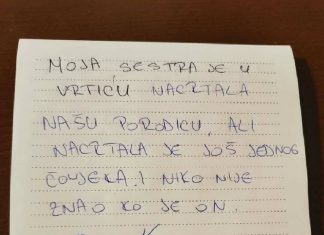 MOJA SESTRA JE U
VRTIĆU NACRTALA
NAŠU PORODICU, ALI
NACRTALA JE JOŠ JEDNOG
ČOVJEKA. I NIKO NIJE
ZNAO KO JE ON.